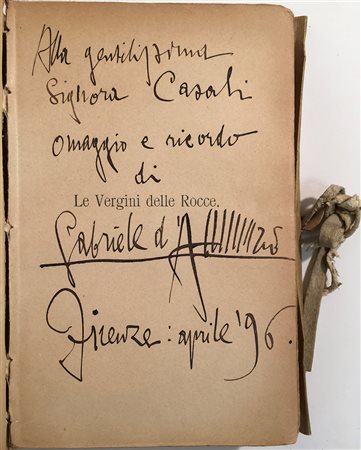 Alla gentilissima
Signora Casali
omaggio e ricordo
di
Le Vergini delle Rocce.
Gabriele d'Annunzio
Firenze: aprile '96.